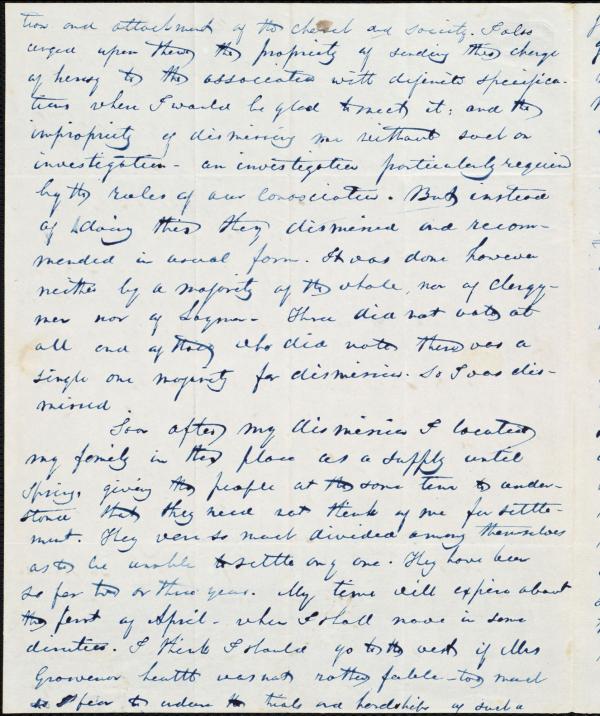 tion and attachment of the church and society. I also
urged upon them the propriety of sending this charge
of heresy to the association with definite specifica-
tions where I would be glad to meet it; and the
impropriety of dismissing me without such an
investigation - an investigation particularly required
by the rules of our consociation. But instead
of doing this they dismissed and recom-
mended in usual form. It was done however
neither by a majority of the whole, nor of clergy-
men nor of Laymen - Three did not vote at
all and of those who did vote there was a
single one majority for dismission. So I was dis-
missed.
Soon after my dismission I located
my family in this place as a supply until
Spring, giving the people at the same time to under-
stand that they need not think of me for settle-
ment. They were so much divided among themselves
as to be unable to settle any one. They have been
so for two or three years. My time will expire about
the first of April - when I shall move in some
direction. I think I should go to the west if Mrs
Grosvenor health was not rather feeble - too much
so I fear to endure the trials and hardships of such a